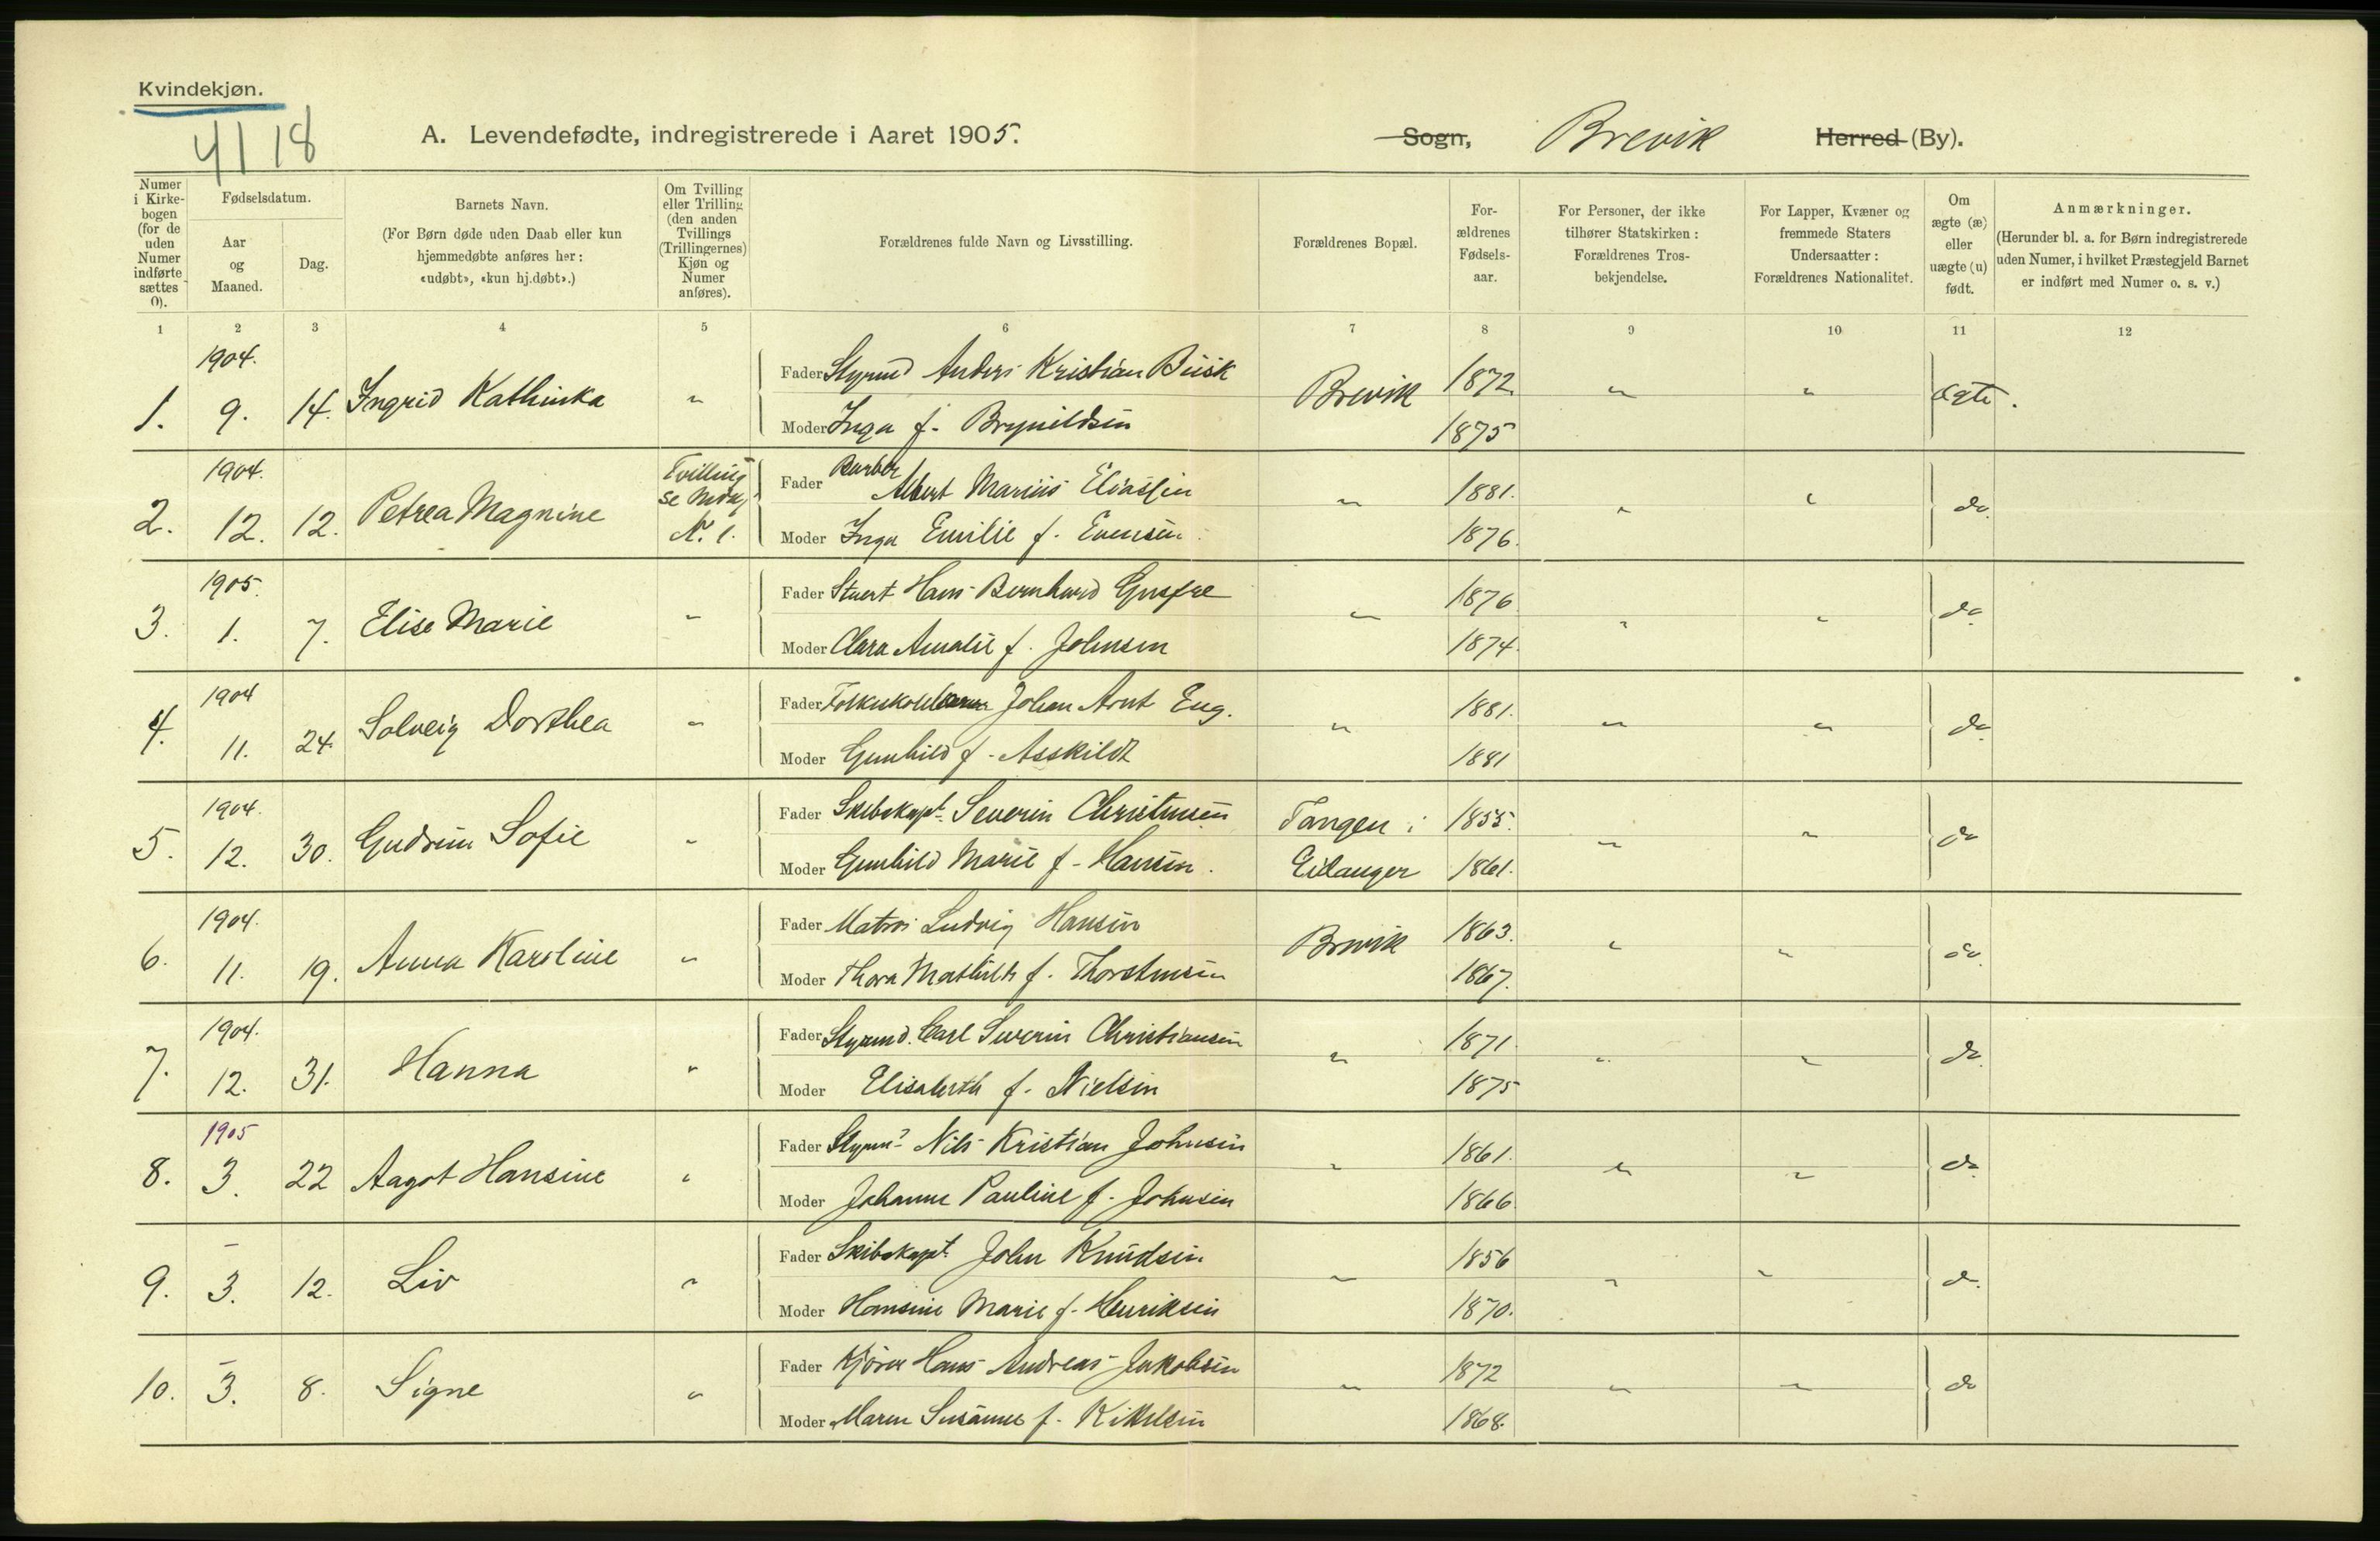 Kvindekjøn.
4118
A. Levendefødte, indregistrerede i Aaret 1905.
Sogn, Brevik Herred (By).
Numer i Kirke-bogen (for de uden Numer indførte sættes 0).
Fødselsdatum.
Aar og Maaned.
Dag.
Barnets Navn.
(For Børn døde uden Daab eller kun hjemmedøbte anføres her: «udøbt», «kun hj.døbt».)
Om Tvilling eller Trilling (den anden Tvillings (Trillingernes) Kjøn og Numer anføres).
Forældrenes fulde Navn og Livsstilling.
Forældrenes Bopæl.
For-ældrenes Fødsels-aar.
For Personer, der ikke tilhører Statskirken: Forældrenes Tros-bekjendelse.
For Lapper, Kvæner og fremmede Staters Undersaatter: Forældrenes Nationalitet.
Om ægte (æ) eller uægte (u) født.
Anmærkninger.
(Herunder bl. a. for Børn indregistrerede uden Numer, i hvilket Præstegjeld Barnet er indført med Numer o. s. v.)
1 2 3 4 5 6 7 8 9 10 11 12
1904.
1. 9. 14. Ingrid Kathinka " Fader Styrmd Anders Kristian Busk Brevik 1872. " " ægte.
Moder Inga f. Brynildsen 1875
1904.
2. 12. 12. Petrea Magnine Tvilling se Mdkj. N. 1. Fader Barber Albert Marius Eliassen " 1881. " " do.
Moder Inga Emilie f. Evensen. 1876.
1905.
3. 1. 7. Elise Marie " Fader Stuert Hans Bernhard Gusfre " 1876 " " do
Moder Clara Amalie f. Johnsen 1874.
1904
4. 11. 24. Solveig Dorthea " Fader Johan Arnt Eng. " 1881. " " do
Moder Gunhild f. Asskildt 1881
1904.
5. 12. 30. Gudrun Sofie " Fader Skibskapt. Severin Christensen Tangen i 1855. " " do
Moder Gunhild Marie f. Hansen. Eidanger 1861.
1904.
6. 11. 19. Anna Karoline " Fader Matros Ludvig Hansen Brevik 1863. " " do
Moder Thora Mathilde f. Thorstensen 1867.
1904.
7. 12. 31. Hanna " Fader Styrmd. Carl Severin Christiansen " 1871. " " do.
Moder Elisabeth f. Nielsen 1875
1905
8. 3. 22 Aagot Hansine " Fader Styrmd Nils Kristian Johnsen " 1861. " " do.
Moder Johanne Pauline f. Johnsen 1866.
–
9. 3. 12. Liv " Fader Skibskapt. John Knudsen " 1856 " " do.
Moder Hansine Marie f. Henriksen 1870.
–
10. 3. 8. Signe " Fader Kjører Hans Andreas Jakobsen " 1872 " " do
Moder Maren Susanne f. Kittelsen 1868.